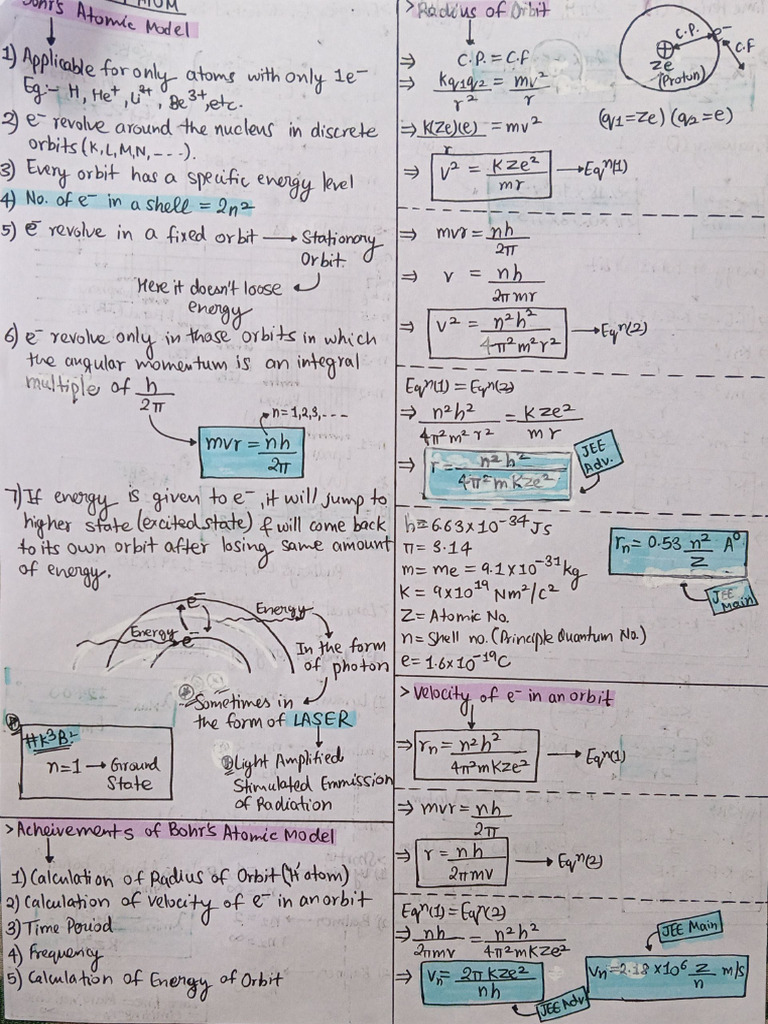 Bohr's Atomic Model
1) Applicable for only atoms with only 1e⁻
Eg:- H, He⁺, Li²⁺, Be³⁺, etc.
2) e⁻ revolve around the nucleus in discrete
orbits (K, L, M, N, ---).
3) Every orbit has a specific energy level
4) No. of e⁻ in a shell = 2n²
5) e⁻ revolve in a fixed orbit → Stationary
Orbit.
Here it doesn't loose
energy
6) e⁻ revolve only in those orbits in which
the angular momentum is an integral
multiple of h/2π
n=1,2,3,---
mvr = nh/2π
7) If energy is given to e⁻, it will jump to
higher state (excited state) & will come back
to its own orbit after losing same amount
of energy.
e⁻ Energy
Energy e⁻
In the form
of photon
Sometimes in
the form of LASER
Light Amplified
Stimulated Emmission
of Radiation
#K³B²
n=1 → Ground
State
> Acheivements of Bohr's Atomic Model
1) Calculation of Radius of Orbit (H atom)
2) Calculation of velocity of e⁻ in an orbit
3) Time Period
4) Frequency
5) Calculation of Energy of Orbit
> Radius of Orbit
C.P. e⁻
C.F
Ze
(Proton)
⇒ C.P. = C.F
⇒ Kq1q2/r² = mv²/r
(q1=Ze) (q2=e)
⇒ K(Ze)(e)/r = mv²
⇒ V² = KZe²/mr → Eqⁿ(1)
⇒ mvr = nh/2π
⇒ v = nh/2πmr
⇒ V² = n²h²/4π²m²r² → Eqⁿ(2)
Eqⁿ(1) = Eqⁿ(2)
⇒ n²h²/4π²m²r² = KZe²/mr
⇒ r = n²h²/4π²mKZe²
JEE
Adv.
h = 6.63×10⁻³⁴ Js
π = 3.14
m = me = 9.1×10⁻³¹ kg
K = 9×10¹⁹ Nm²/C²
Z = Atomic No.
n = Shell no. (Principle Quantum No.)
e = 1.6×10⁻¹⁹ C
rn = 0.53 n²/Z A⁰
JEE
Main
> Velocity of e⁻ in an orbit
⇒ rn = n²h²/4π²mKZe² → Eqⁿ(1)
⇒ mvr = nh/2π
⇒ r = nh/2πmv → Eqⁿ(2)
Eqⁿ(1) = Eqⁿ(2)
⇒ nh/2πmv = n²h²/4π²mKZe²
JEE Main
⇒ Vn = 2πKZe²/nh
Vn = 2.18×10⁶ Z/n m/s
JEE Adv